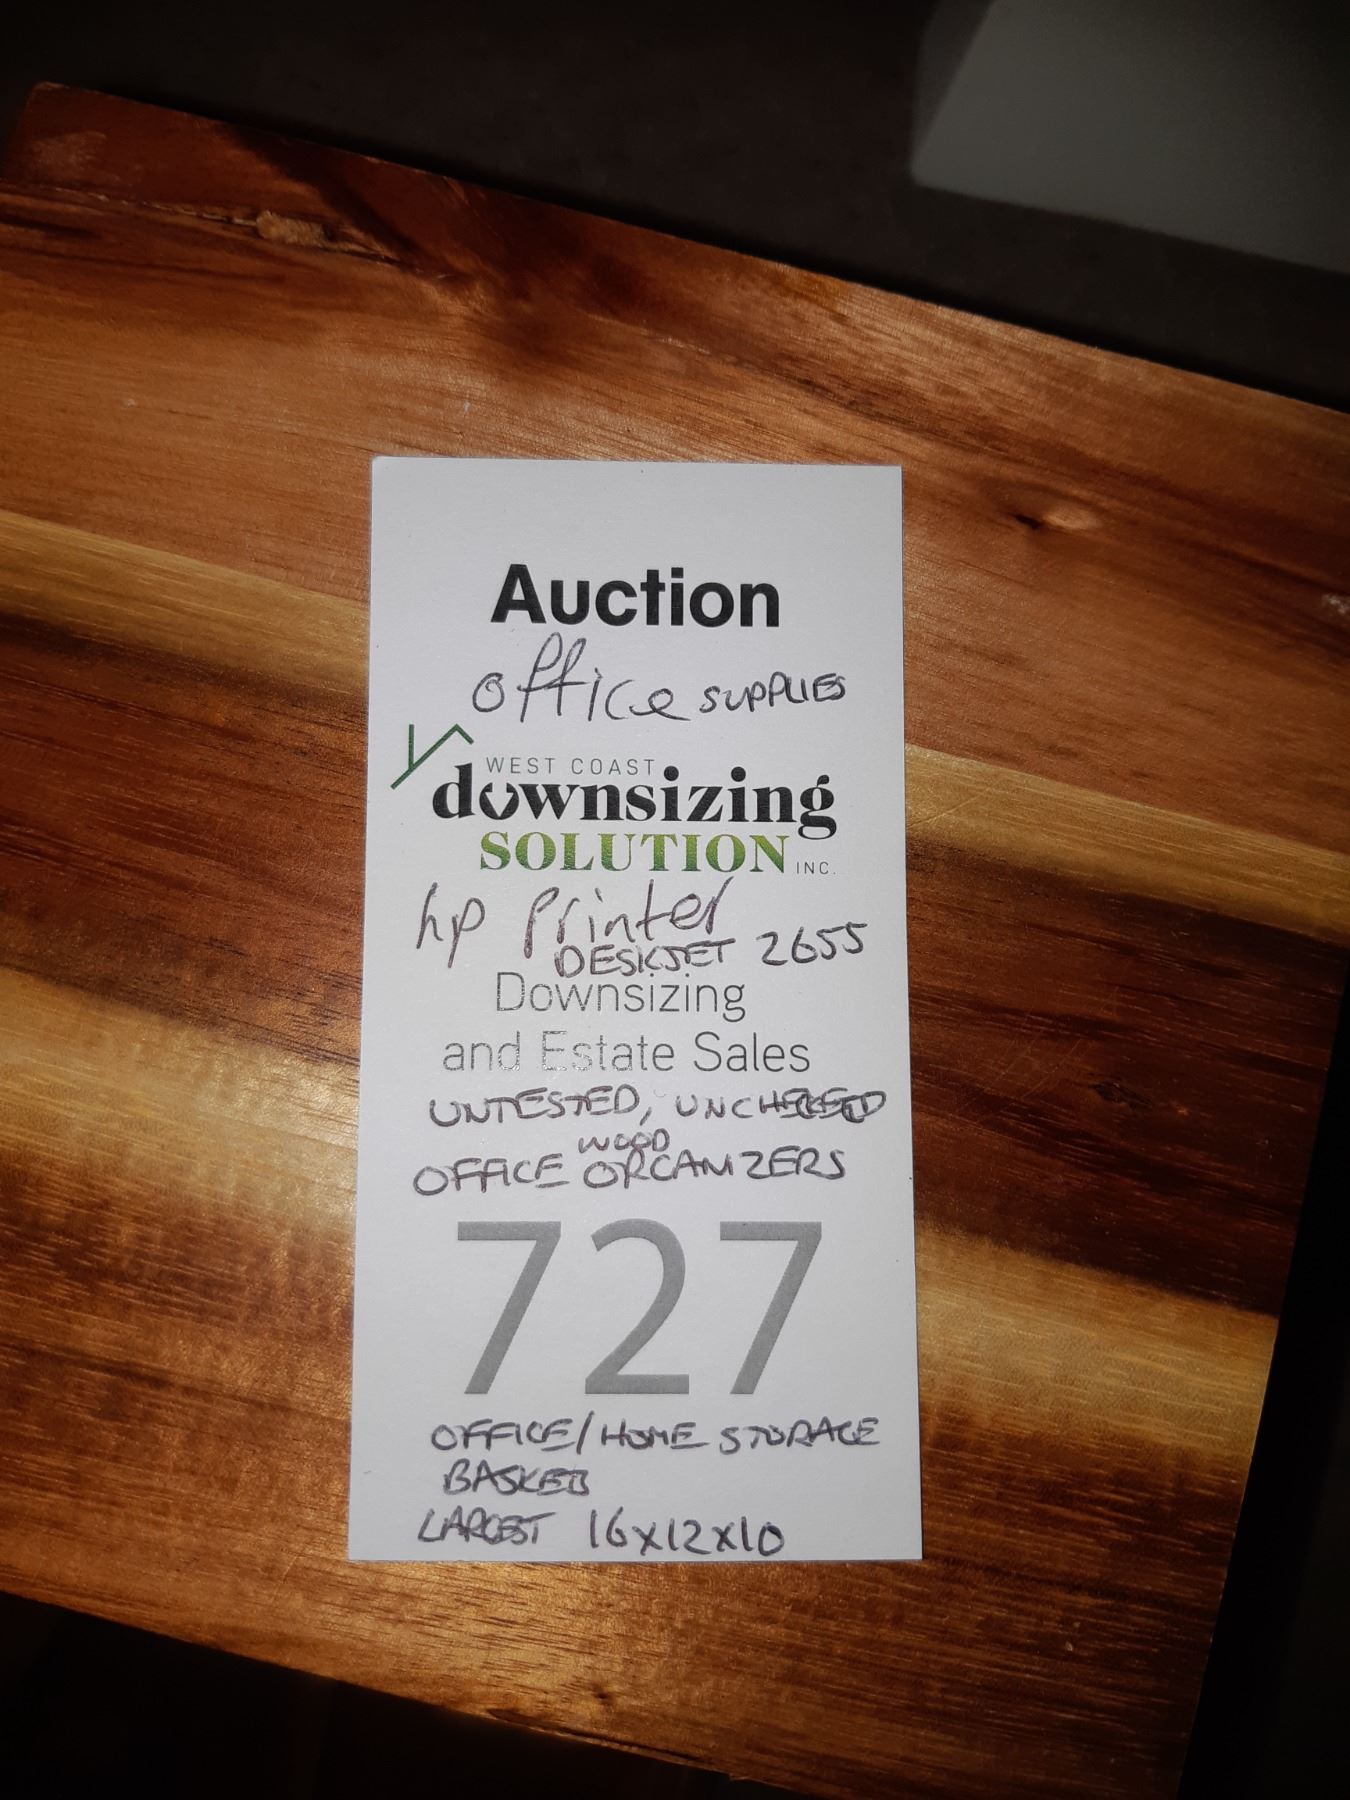 Auction
office SUPPLIES
WEST COAST
downsizing
SOLUTION INC.
hp Printer
DESKJET 2655
Downsizing
and Estate Sales
UNTESTED, UNCHECKED
WOOD
OFFICE ORGANIZERS
727
OFFICE/HOME STORAGE
BASKETS
LARGEST 16x12x10